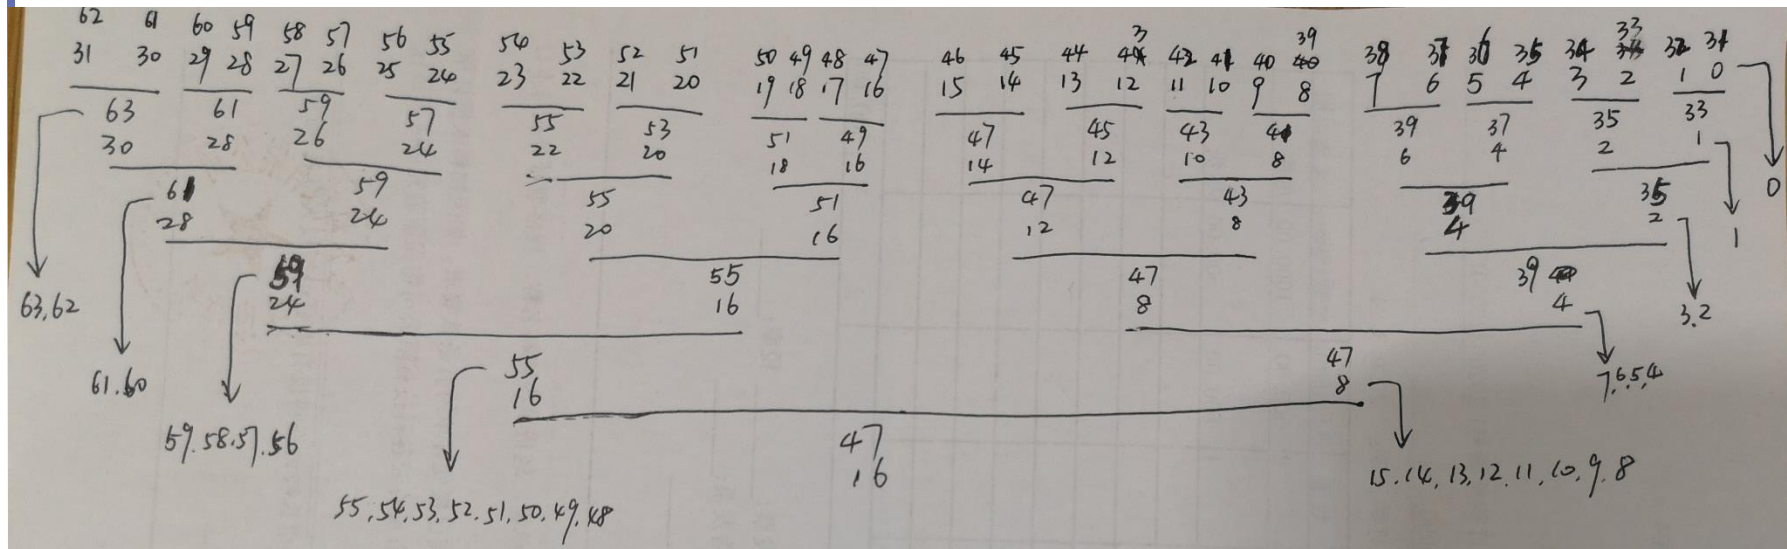 62 61 60 59 58 57 56 55 54 53 52 51 50 49 48 47 46 45 44 43 42 41 40 39 38 37 36 35 34 33 32 31
31 30 29 28 27 26 25 24 23 22 21 20 19 18 17 16 15 14 13 12 11 10 9 8 7 6 5 4 3 2 1 0
63 61 59 57 55 53 51 49 47 45 43 41 39 37 35 33
30 28 26 24 22 20 18 16 14 12 10 8 6 4 2 1
61 59 55 51 47 43 39 35
28 24 20 16 12 8 4 2
0
1
59 55 47 39
24 16 8 4
63,62
3.2
55 47
16 8
61.60
7,6,5,4
59.58.57.56
47
16
15.14,13,12.11,10,9.8
55,54,53,52.51,50,49,48